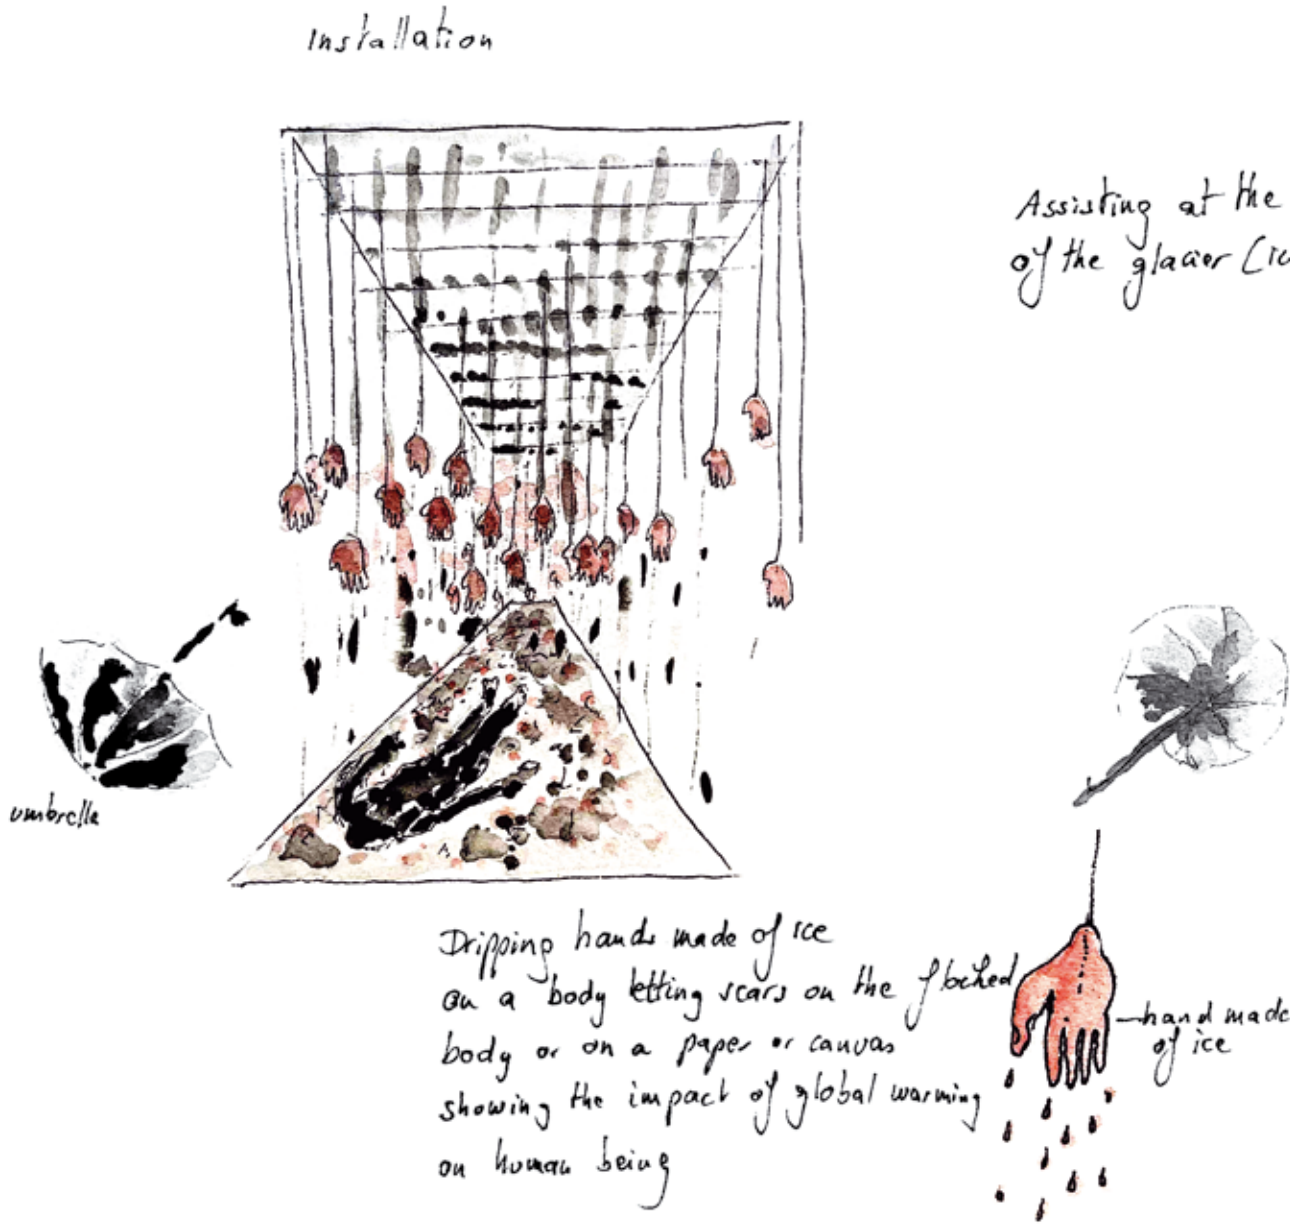 Installation
Assisting at the
of the glacier (ic
umbrella
Dripping hands made of ice
on a body letting scars on the flocked
body or on a paper or canvas
showing the impact of global warming
on human being
hand made
of ice